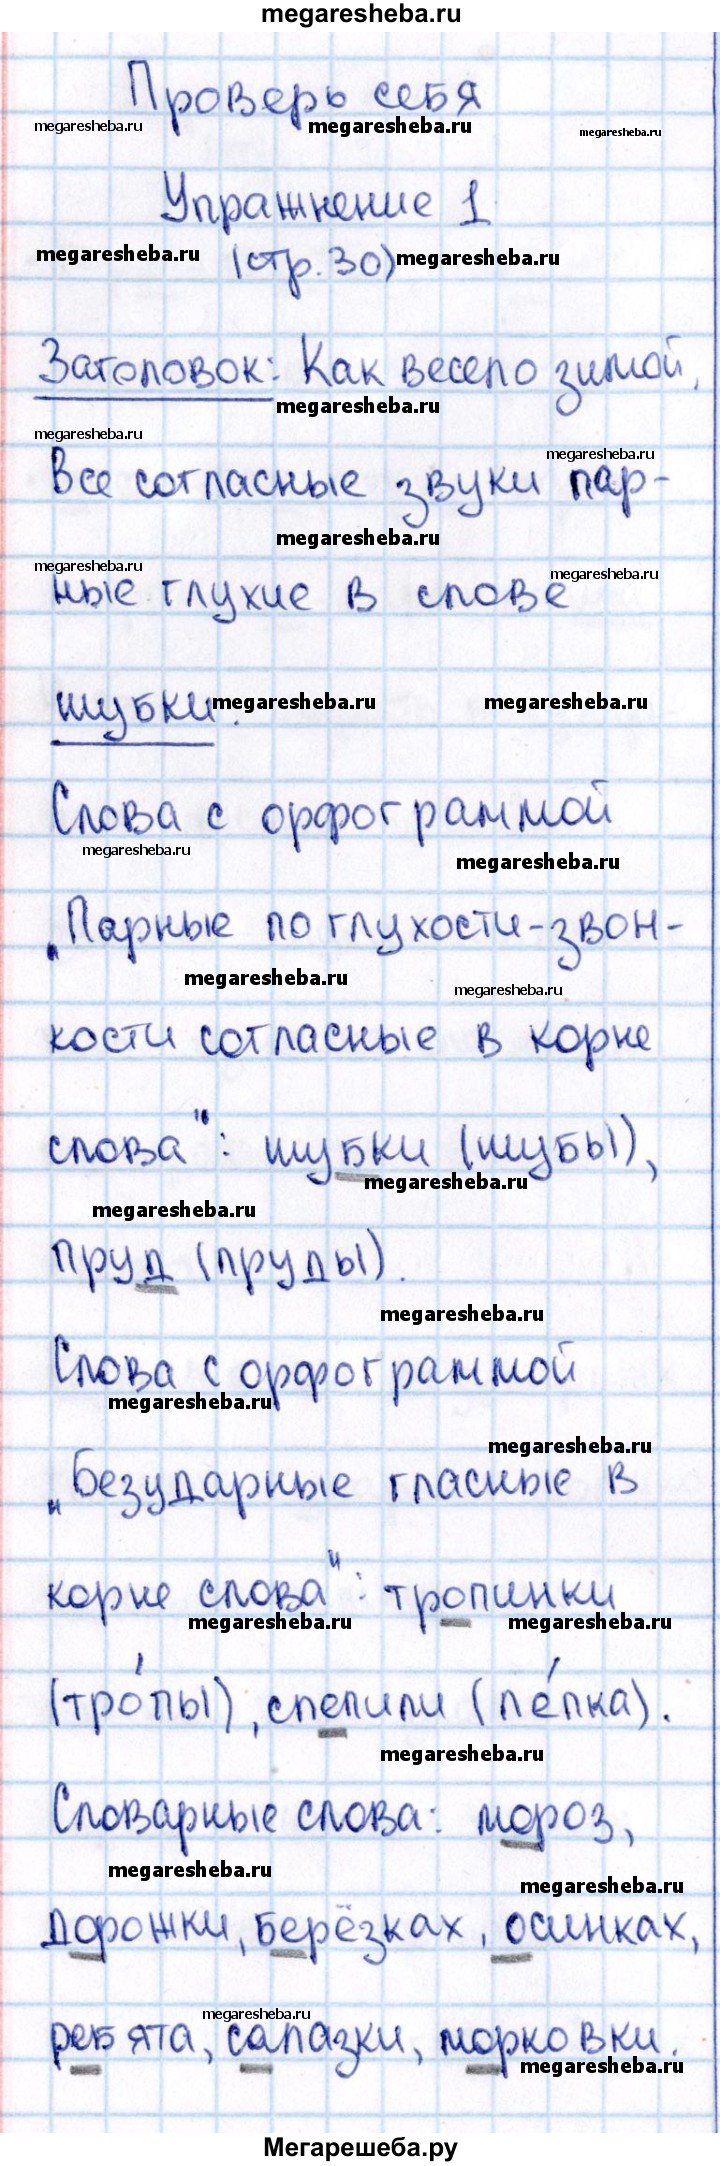 megaresheba.ru
Проверь себя
megaresheba.ru megaresheba.ru megaresheba.ru
Упражнение 1
megaresheba.ru (стр. 30) megaresheba.ru
Заголовок: Как весело зимой,
megaresheba.ru
megaresheba.ru megaresheba.ru
Все согласные звуки пар-
megaresheba.ru
megaresheba.ru megaresheba.ru
ные глухие в слове
шубки. megaresheba.ru megaresheba.ru
Слова с орфограммой
megaresheba.ru megaresheba.ru
„Парные по глухости-звон-
megaresheba.ru megaresheba.ru
кости согласные в корне
слова": шубки (шубы),
megaresheba.ru
megaresheba.ru
пруд (пруды).
megaresheba.ru
Слова с орфограммой
megaresheba.ru
megaresheba.ru
„Безударные гласные в
корне слова": тропинки
megaresheba.ru megaresheba.ru
(тро́пы), слепили (ле́пка).
megaresheba.ru
Словарные слова: мороз,
megaresheba.ru megaresheba.ru
дорожки, берёзках, осинках,
megaresheba.ru
ребята, салазки, морковки.
megaresheba.ru
Мегарешеба.ру